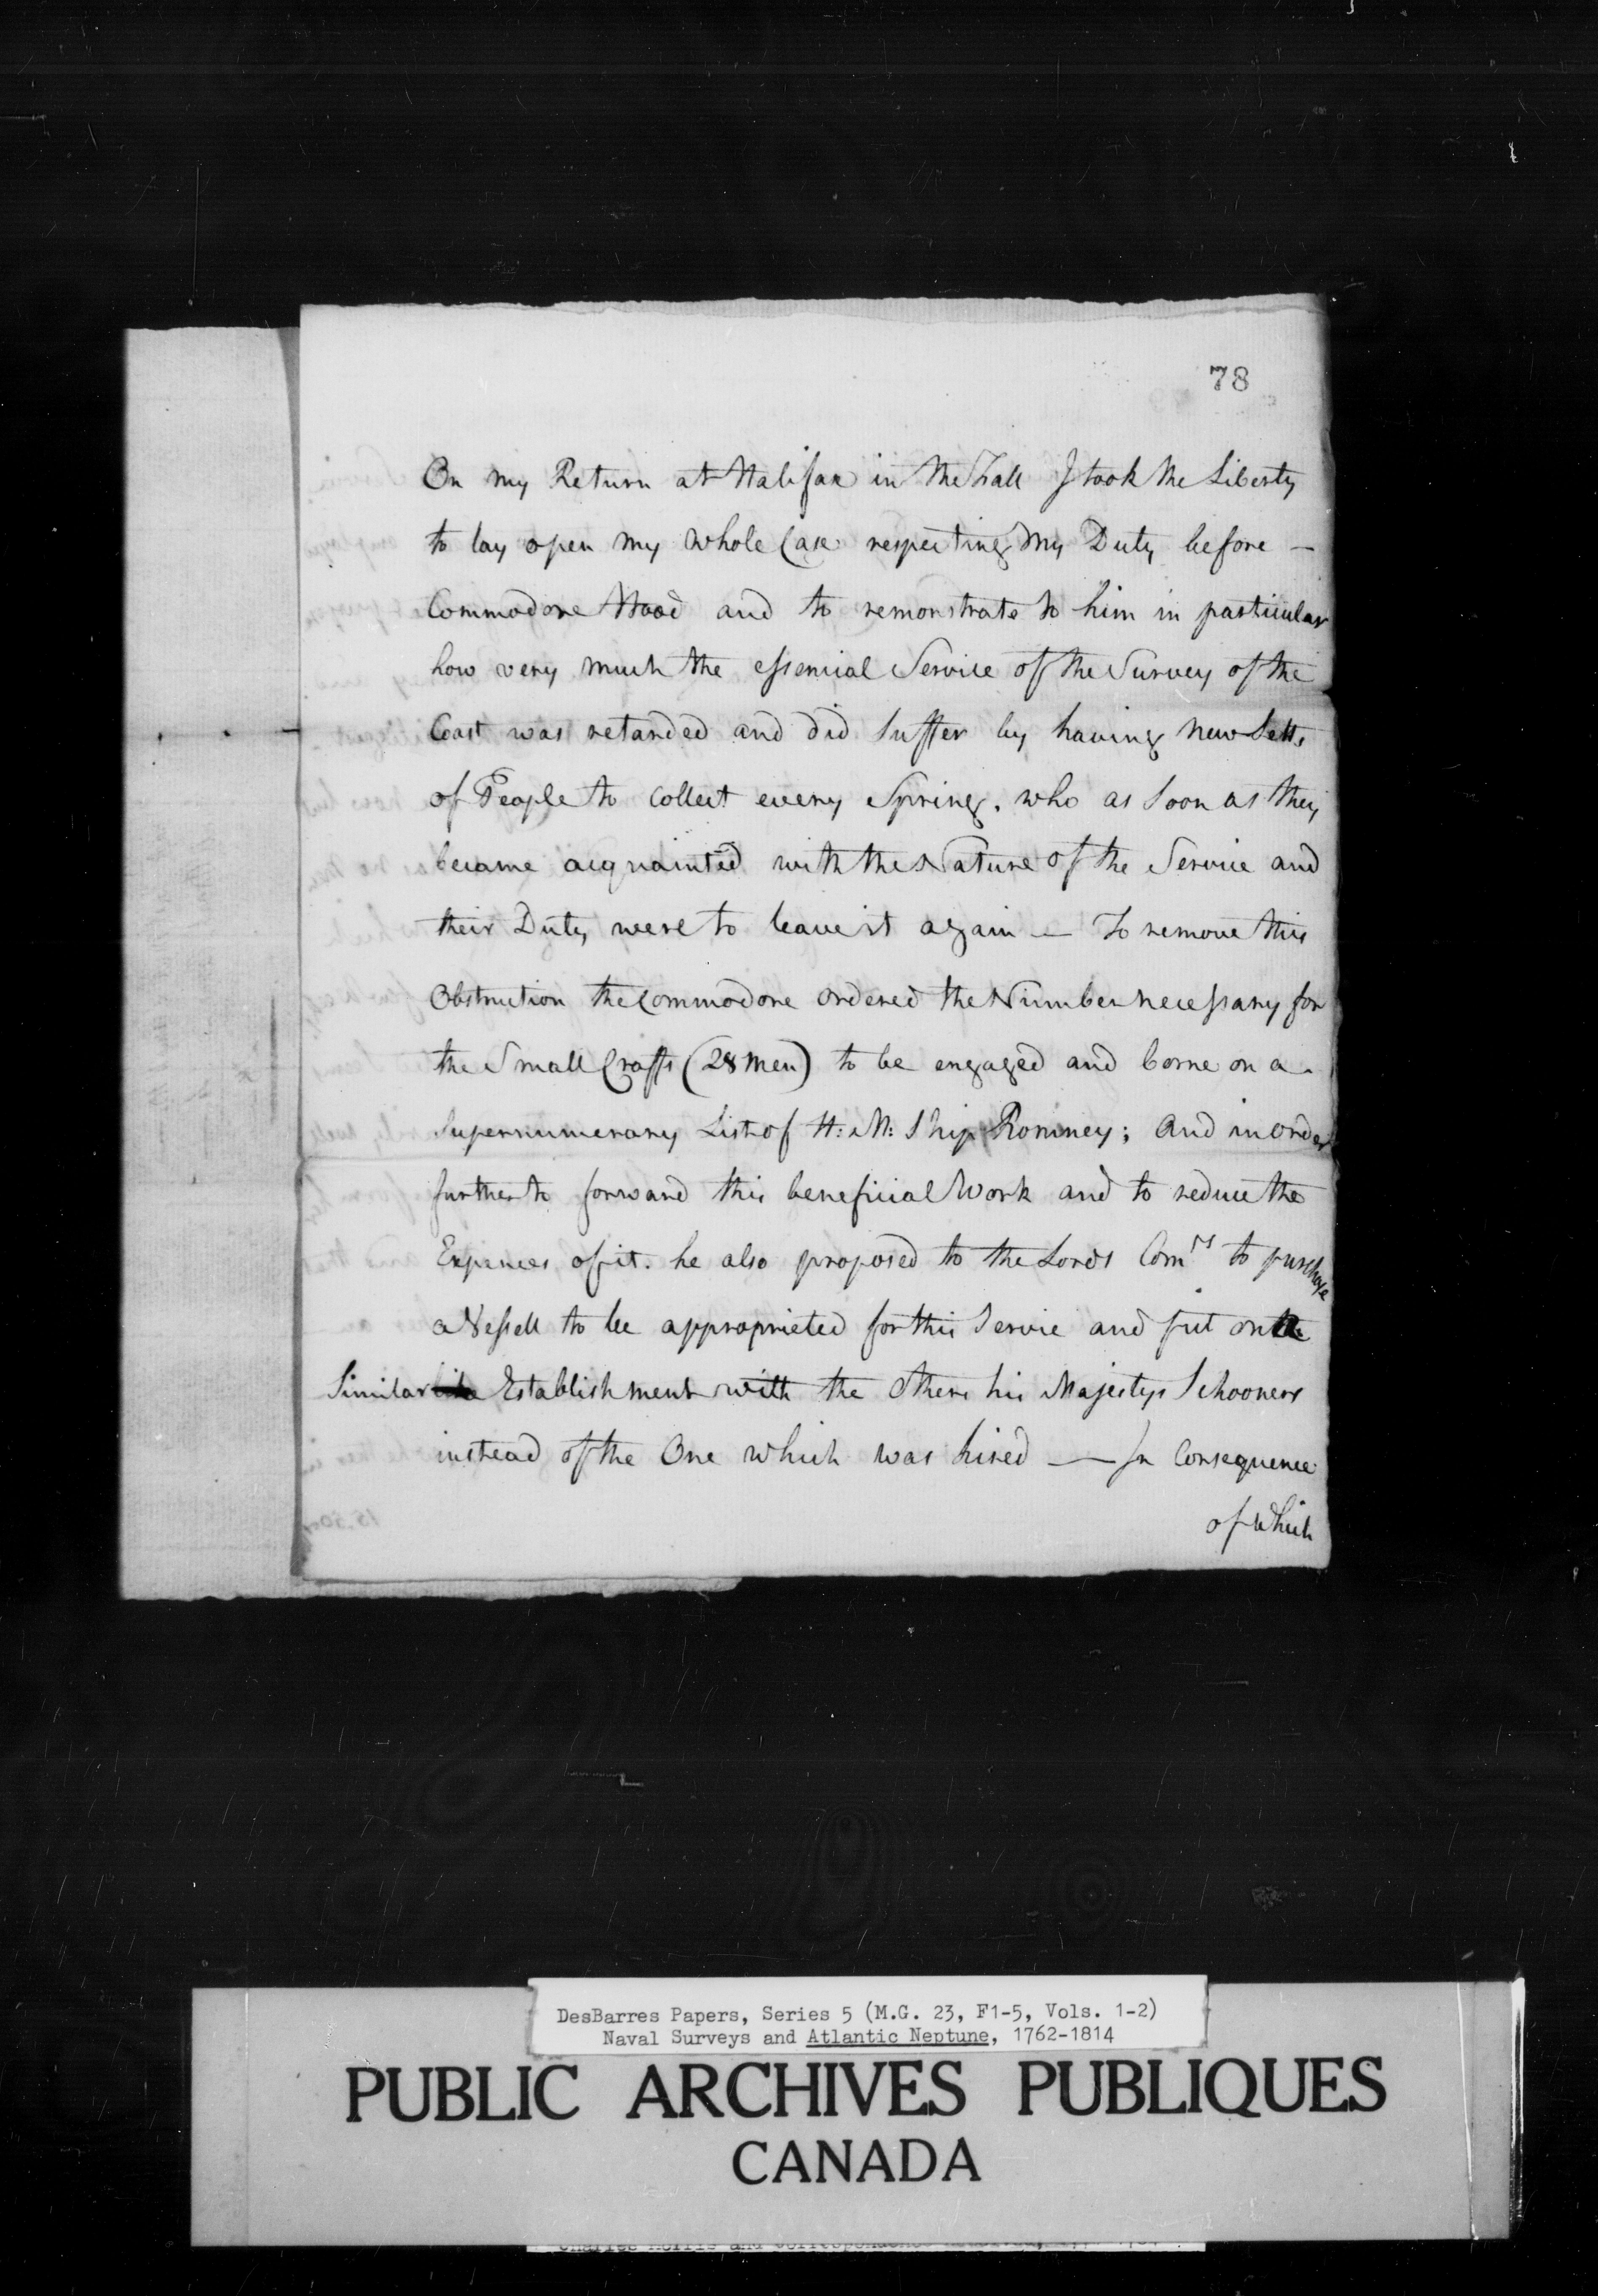 78
On my Return at Halifax in the Fall I took the Liberty
to lay open my whole Case respecting my Duty before —
Commodore Hood and to remonstrate to him in particular
how very much the essencial Service of the Survey of the
Coast was retarded and did Suffer by having new Setts
of People to Collect every Spring, who as Soon as they
became acquainted with the Nature of the Service and
their Duty were to leave it again — To remove this
Obstruction the Commodore ordered the Number necessary for
the Small Crafts (28 Men) to be engaged and borne on a
Supernumerary List of H: M: Ship Romney; And in order
further to forward this beneficial Work and to reduce the
Expences of it. he also proposed to the Lords Comrs to purchase
a Vessell to be appropriated for this Service and put on a
Similar Establishment with the others his Majestys Schooners
instead of the One which was hired — In Consequence
of which
DesBarres Papers, Series 5 (M.G. 23, F1-5, Vols. 1-2)
Naval Surveys and Atlantic Neptune, 1762-1814
PUBLIC ARCHIVES PUBLIQUES
CANADA